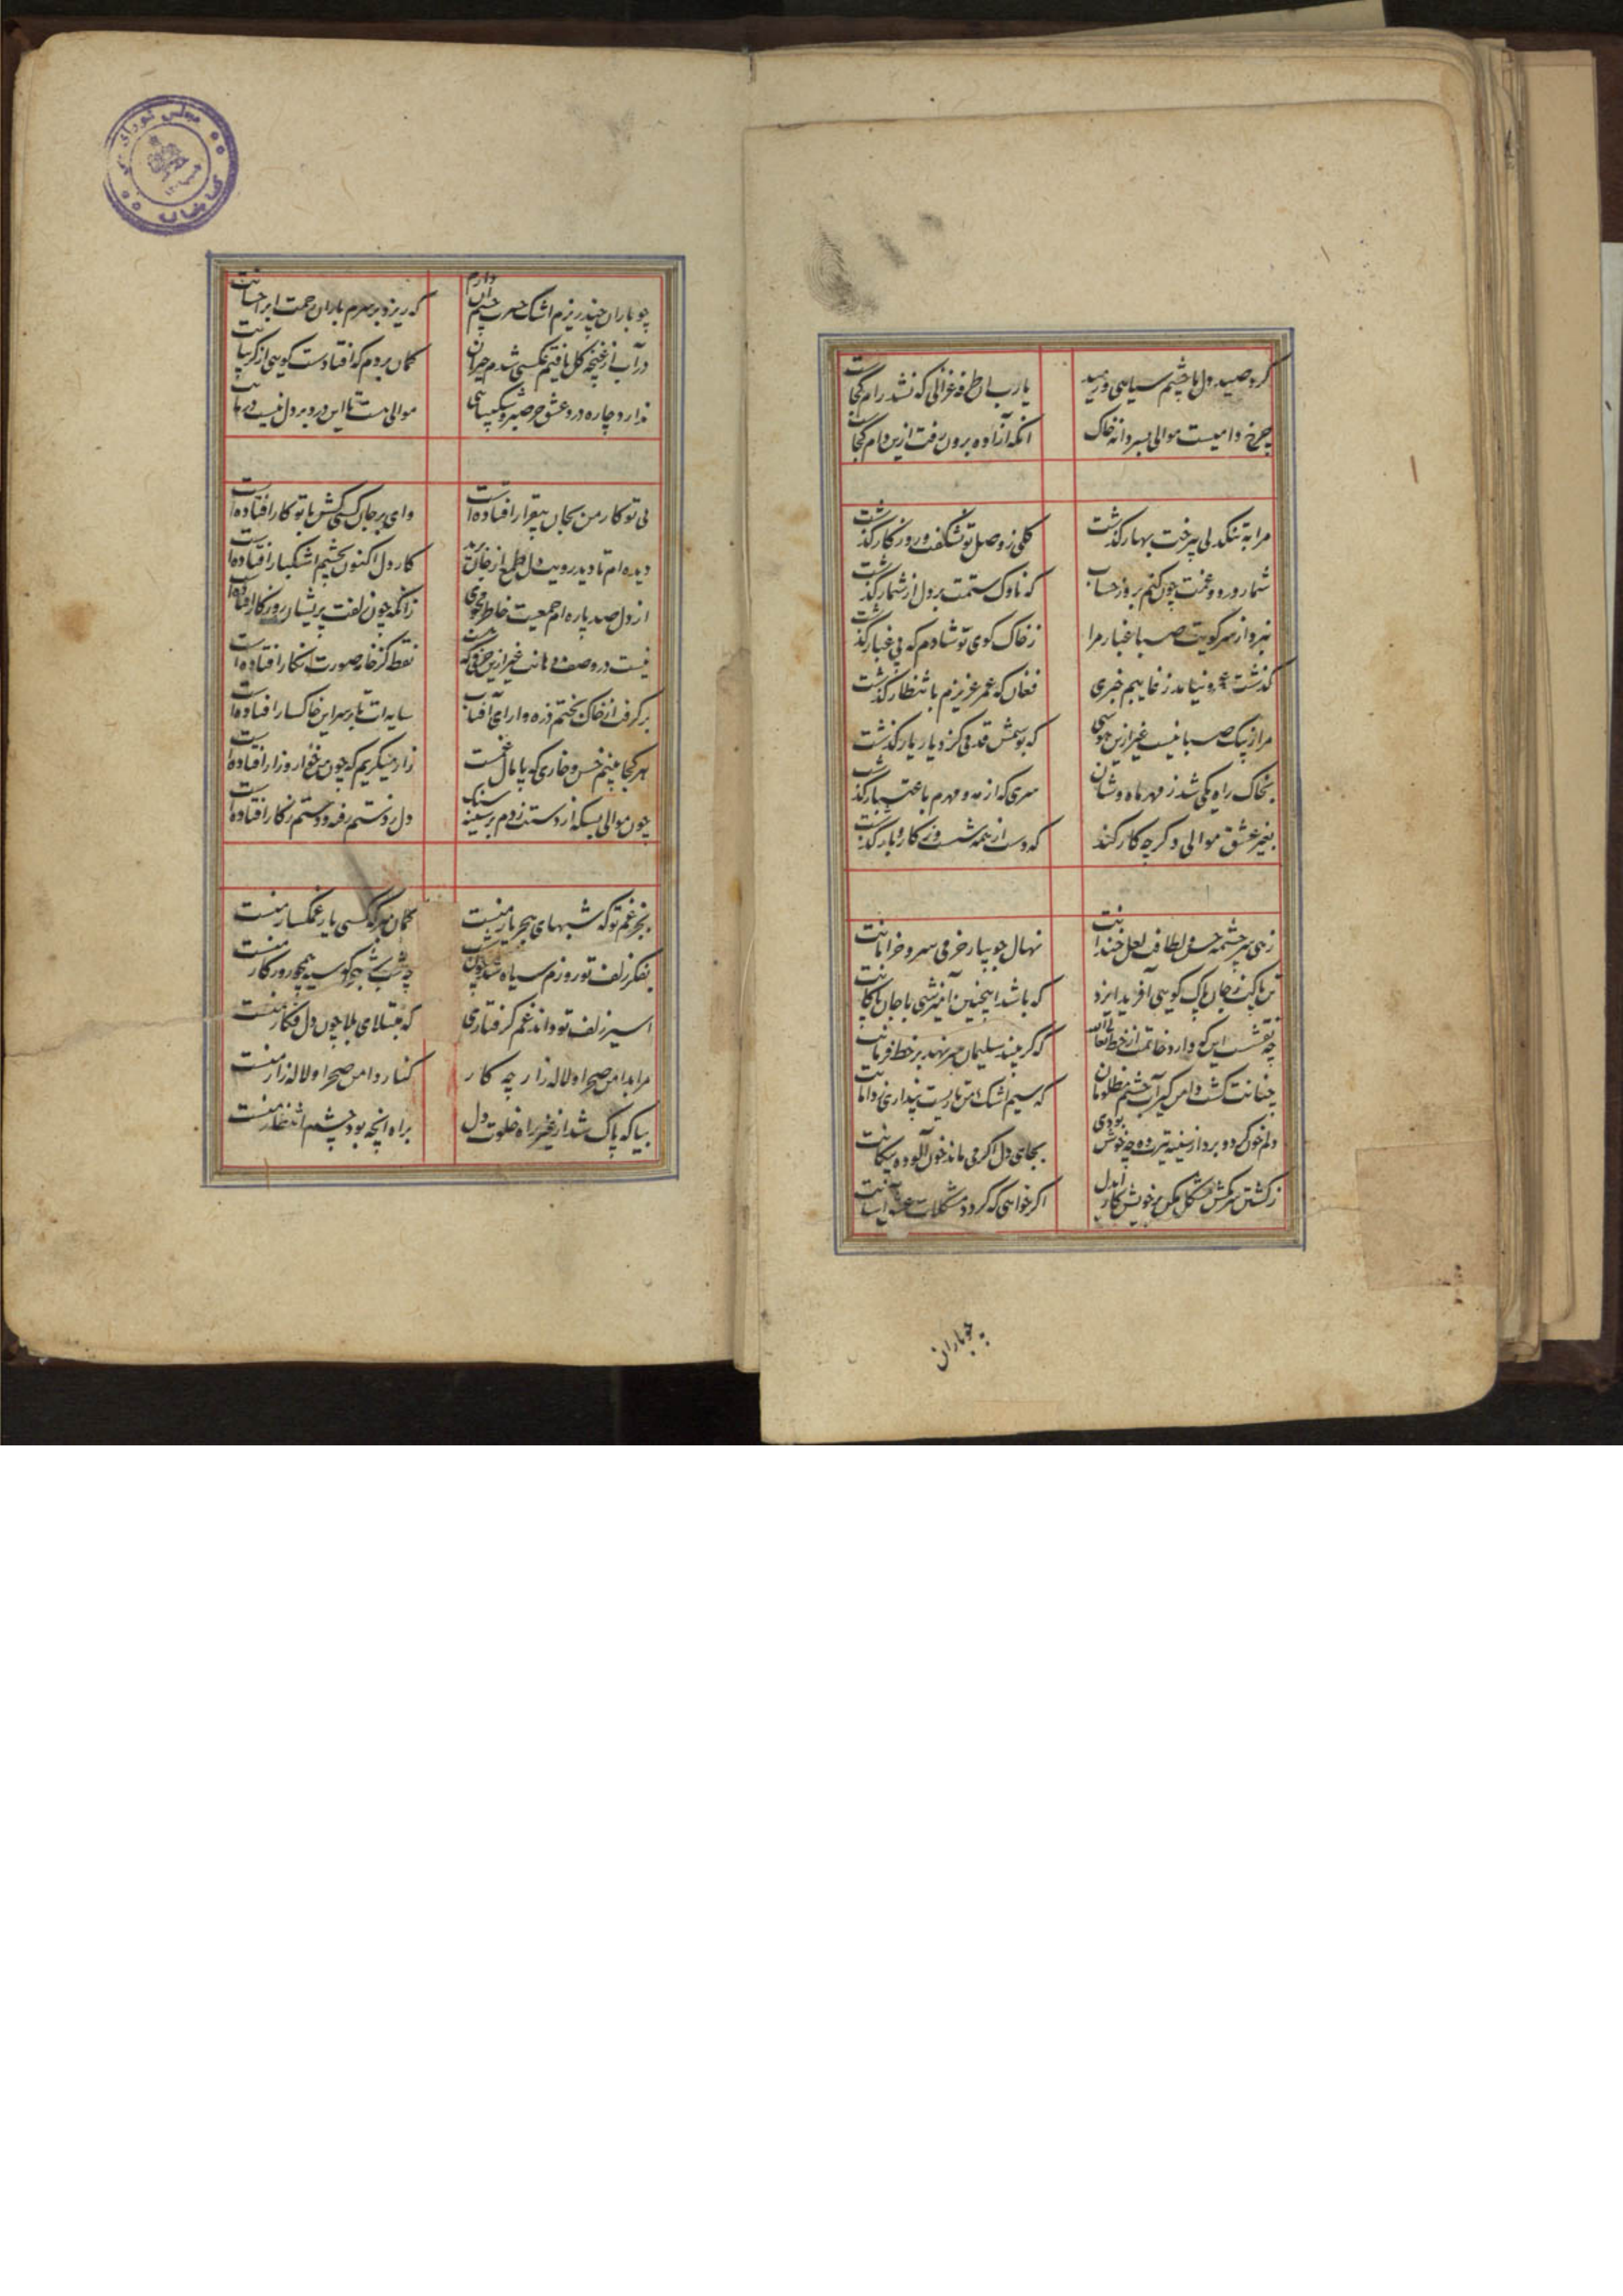 کرد صید دل ما چشم سیاهی و رمید
یارب آن طرفه غزالی که نشد رام کجاست
چرخ دامیست موالی بسر دانه خاک
انکه آزاده برون رفت ازین دام کجاست
مرا به تنکدلی بی رخت بهار کذشت
کلی ز وصل تو نشکفت و روزکار کذشت
شمار درد و غمت چون کنم بروز حساب
که ناوک ستمت بر دل از شمار کذشت
نبرد از سر کویت صبا غبار مرا
ز خاک کوی تو شادم که بی غبار کذشت
کذشت عمر و نیامد ز غایبم خبری
فغان که عمر عزیزم بانتظار کذشت
مرا ز پیک صبا نیست غیر ازین هوسی
که بوسمش قدمی کز دیار یار کذشت
بخاک راه یکی شد ز مهر ماه وشان
سری که از مه و مهرم باعتبار کذشت
بغیر عشق موالی دکر چه کار کند
که دست از همه شست و ز کار و بار کذشت
زهی سرچشمه حسن و لطافت لعل خندانت
نهال جویبار خرمی سرو خرامانت
تن پاکت ز جان پاک کویی آفرید ایزد
که باشد اینچنین آمیزشی با جان پاکانت
چه نقشست این که دارد خاتمت از خط تعالی الله
که کر بیند سلیمان سر نهد بر خط فرمانت
چنانت کشت دامن کیر آب چشم مظلومان
که سیم اشک من تا ریست پنداری ز دامانت
دلم خون کرد و برد از سینه تیرت وه چه خوش بودی
بجای دل اکر می ماند خون آلوده پیکانت
ز کشتن سر مکش مشکل مکن بر خویش کار ایدل
اکر خواهی که کردد مشکلات عشق آسانت
چو باران
چو باران چند ریزم اشک حسرت چشم آن دارم
که ریزد بر سرم باران رحمت ابر احسانت
در آب از غنچه کل یافتم عکسی شدم حیران
کمان بردم که افتادست کویی از کریبانت
ندارد چاره درد عشق جز صبر و شکیبایی
موالی هست تا این درد بر دل نیست درمانت
بی تو کار من بجان بیقرار افتاده است
وای بر جان کسی کش با تو کار افتاده است
دیده ام تا دید رویت دل طمع از جان برید
کار دل اکنون بچشم اشکبار افتاده است
از دل صد پاره ام جمعیت خاطر مجوی
زانکه چون زلفت پریشان روزکار افتاده است
نیست در وصف دهانت غیر ازین حرفی که هست
نقطه کز خامه صورت نکار افتاده است
بر کرفت از خاک بختم ذره وار ای آفتاب
سایه ات تا بر سر این خاکسار افتاده است
هر کجا بینم خس و خاری که پامال غمست
زار میکریم که چون من خوار و زار افتاده است
چون موالی بسکه از دستت زدم بر سینه سنک
دل ز دستم رفته و دستم ز کار افتاده است
بجز غم تو که شبهای هجر یار منست
کمان مبر که کسی یار غمکسار منست
بفکر زلف تو روزم سیاه شد چون شب
چه شب که سیه همچو روزکار منست
اسیر زلف تو داند غم کرفتاری
که مبتلای بلا چون دل فکار منست
مرا بدامن صحرا و لاله زار چه کار
کنار و دامن صحرا و لاله زار منست
بیا که پاک شد از غیر راه خلوت دل
براه انچه بود چشم انتظار منست